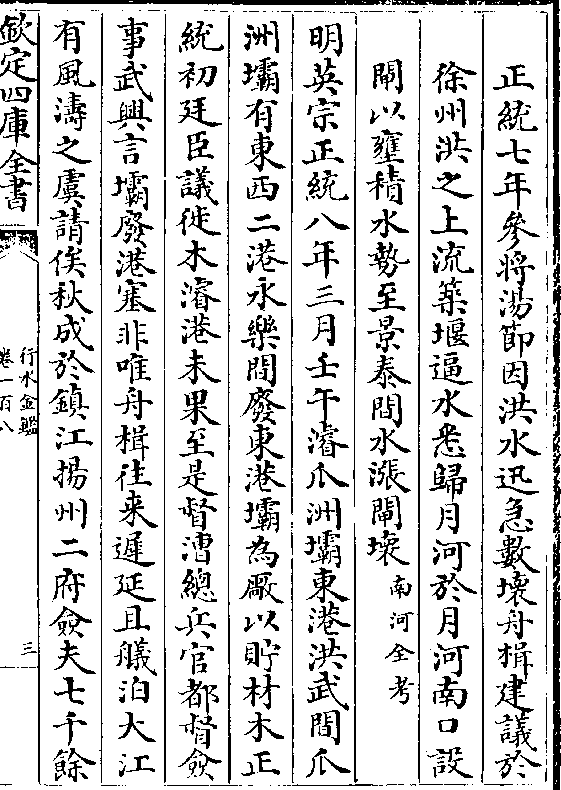 正統七年參將湯節因洪水迅急數壞舟楫建議於
徐州洪之上流築堰逼水悉歸月河於月河南口設
閘以壅積水勢至景泰間水漲閘壞南河全考
明英宗正統八年三月壬午濬爪洲壩東港洪武間爪
洲壩有東西二港永樂間廢東港壩為厰以貯材木正
統初廷臣議徙木濬港未果至是督漕總兵官都督僉
事武興言壩廢港塞非唯舟楫往来遲延且艤泊大江
有風濤之虞請俟秋成於鎮江揚州二府僉夫七千餘
欽定四庫全書
行水金鑑
卷一百八
三